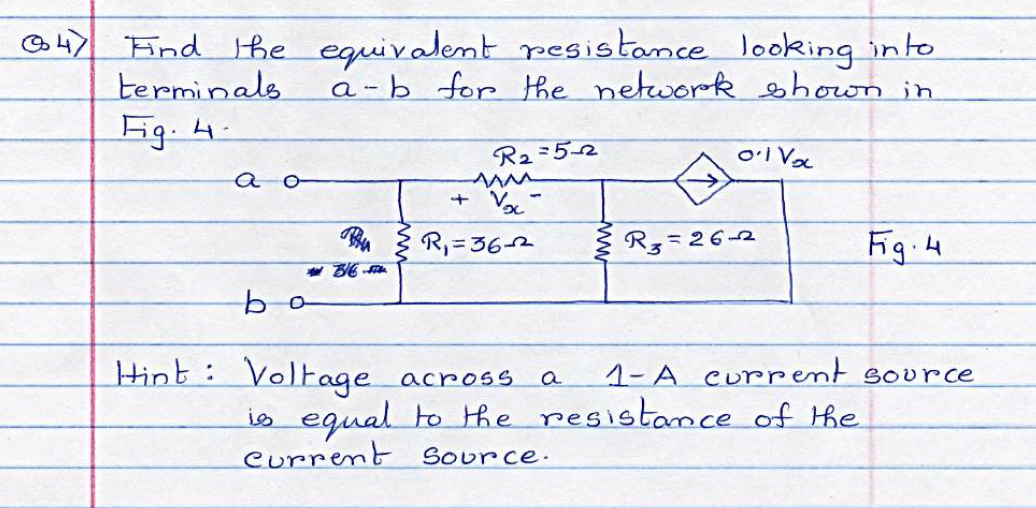 Q4) Find the equivalent resistance looking into
terminals a-b for the network shown in
Fig. 4.
R2 = 5Ω
0.1 Vx
a
+ Vx -
R1 = 36Ω
R3 = 26Ω
Fig. 4
b
Hint : Voltage across a 1-A current source
is equal to the resistance of the
current source.